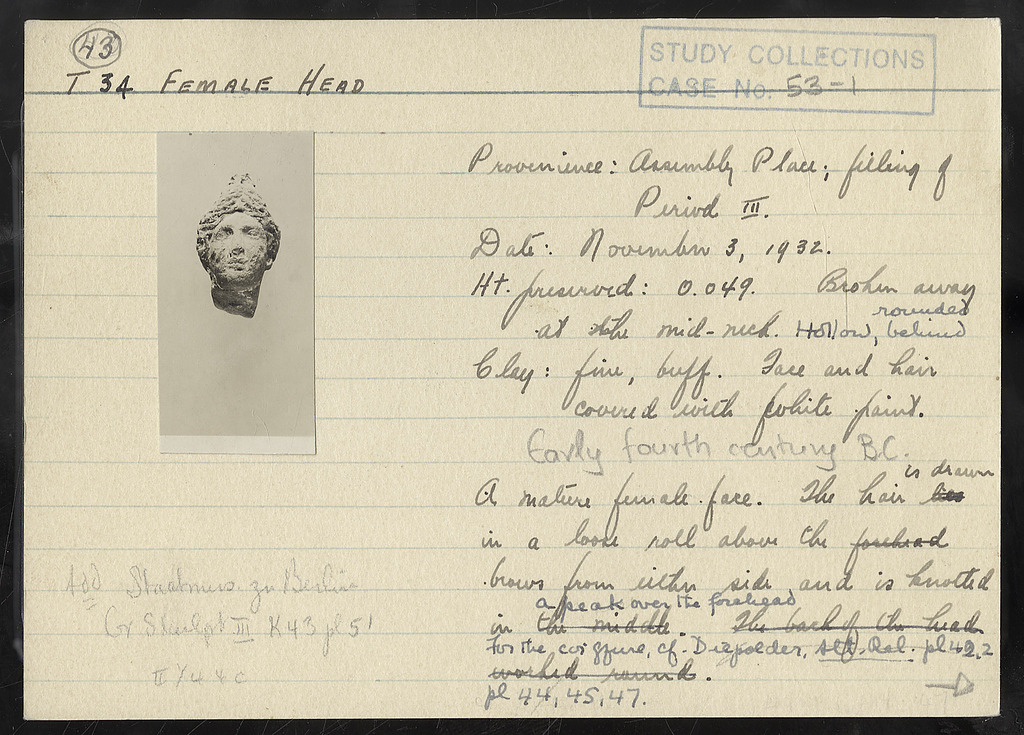 43
T 34 FEMALE HEAD
STUDY COLLECTIONS
CASE No. 53-1
Provenience: Assembly Place; filling of
Period III.
Date: November 3, 1932.
Ht. preserved: 0.049. Broken away
rounded
at the mid-neck. Hollow, behind
Clay: fine, buff. Face and hair
covered with white paint.
Early fourth century B.C.
is drawn
A mature female face. The hair lies
in a loose roll above the forehead
brows from either side and is knotted
a peak over the forehead
in the middle. The back of the head
For the coiffure, cf. Diepolder, Att. Rel. pl 42,2
worked round.
pl 44, 45, 47.
Add Staatmus. zu Berlin
Gr Skulpt III K43 pl 51